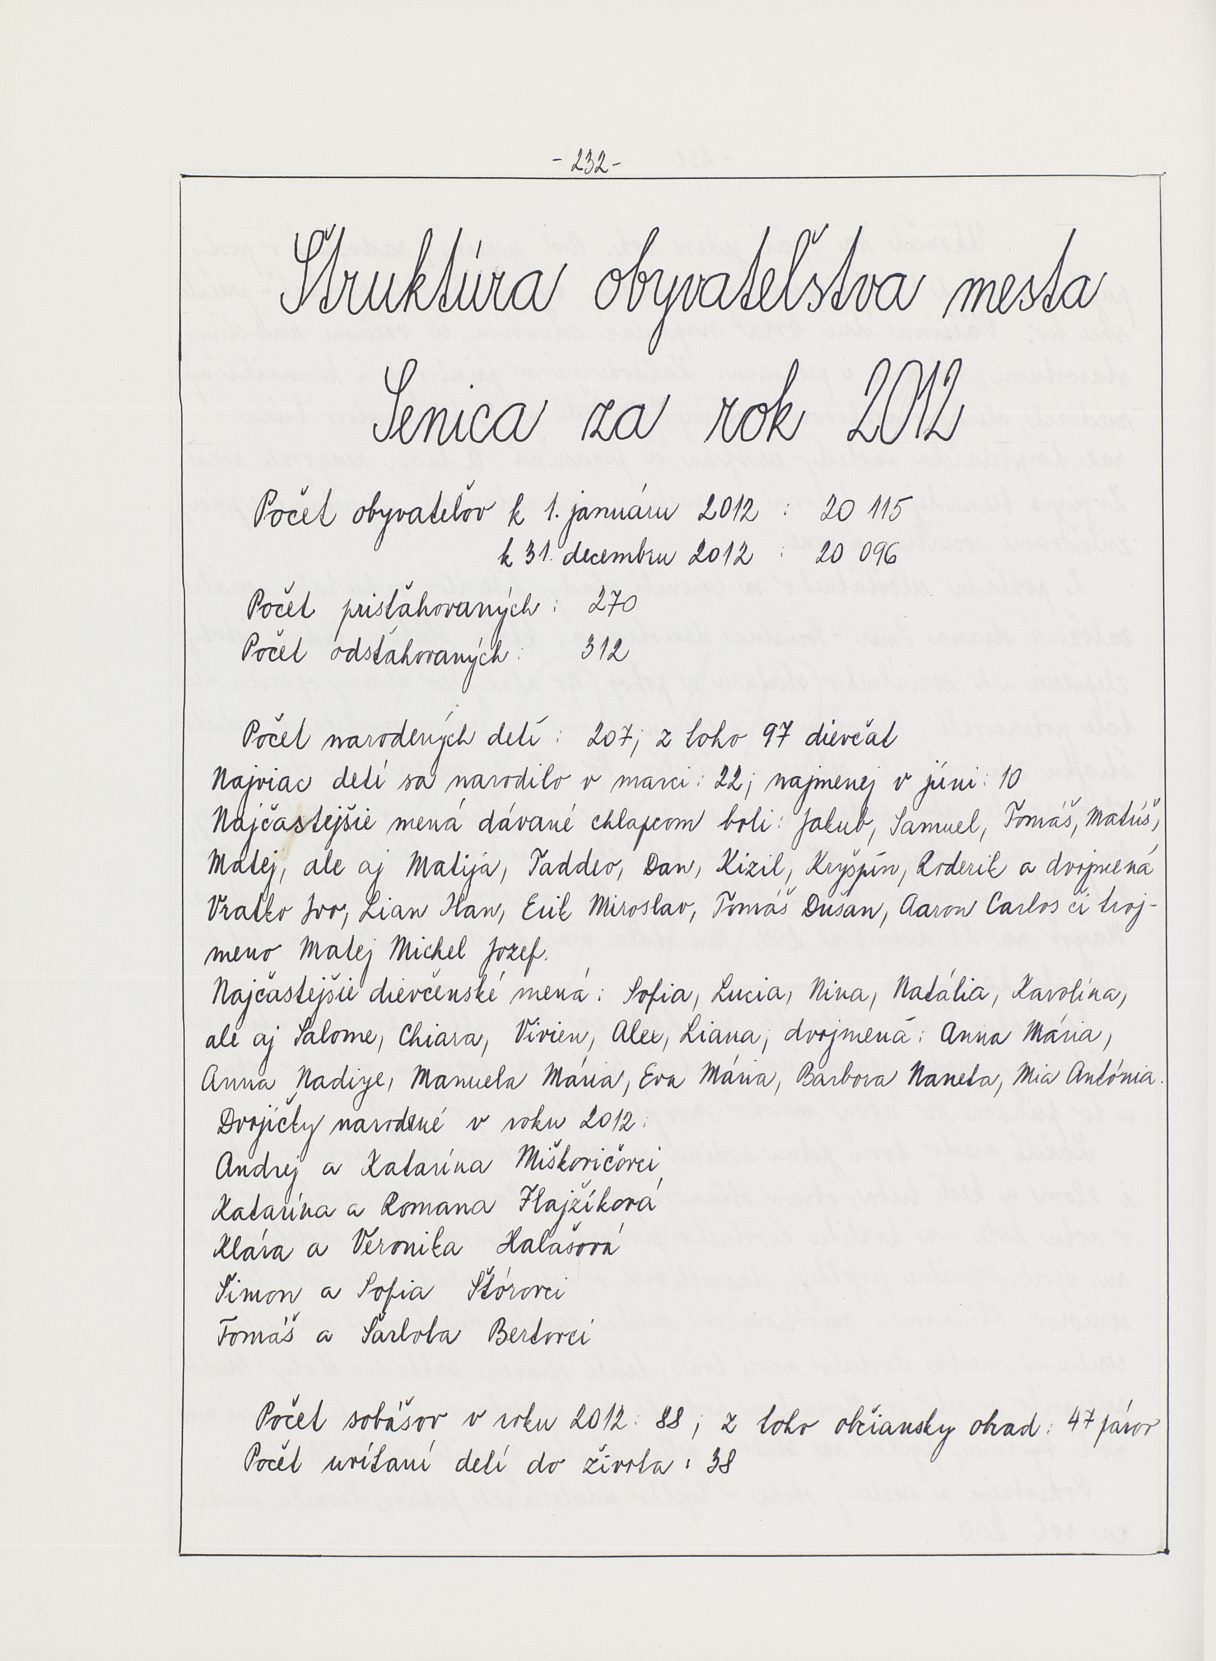 - 232 -
Štruktúra obyvateľstva mesta
Senica za rok 2012
Počet obyvateľov k 1. januáru 2012 : 20 115
k 31. decembru 2012 : 20 096
Počet prisťahovaných : 270
Počet odsťahovaných : 312
Počet narodených detí : 207; z toho 97 dievčat
Najviac detí sa narodilo v marci : 22; najmenej v júni : 10
Najčastejšie mená dávané chlapcom boli : Jakub, Samuel, Tomáš, Matúš,
Matej, ale aj Matija, Taddeo, Dan, Kizil, Kryšpín, Roderik a dvojmená
Vratko Ivo, Lian Ilan, Erik Miroslav, Tomáš Dušan, Aaron Carlos či troj-
meno Matej Michel Jozef.
Najčastejšie dievčenské mená : Sofia, Lucia, Nina, Natália, Karolína,
ale aj Salome, Chiara, Vivien, Alex, Liana; dvojmená : Anna Mária,
Anna Nadiye, Manuela Mária, Eva Mária, Barbora Naneta, Mia Antónia.
Dvojičky narodené v roku 2012 :
Andrej a Katarína Miškoričovci
Katarína a Romana Hajžíková
Klára a Veronika Halašová
Šimon a Sofia Štórovci
Tomáš a Šarlota Bertovci
Počet sobášov v roku 2012 : 88 ; z toho občiansky obrad : 47 párov
Počet uvítaní detí do života : 38